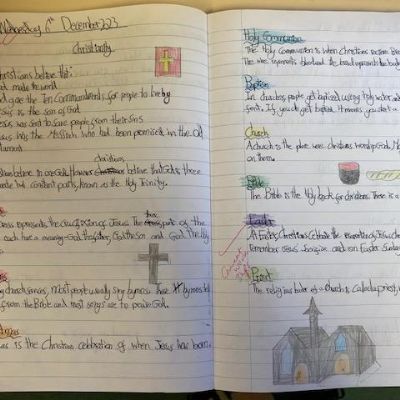 Wednesday 6th December 2023
Christianity
Christians believe that:
made the world
gave the Ten Commandments for people to live by
Jesus is the son of God
Jesus was sent to save people from their sins
Jesus was the Messiah who had been promised in the Old
Testament
Christians
believe in one God. However believe that God is three
but constant parts, known as the Holy Trinity.
represents the crucifixion of Jesus. The three parts of the
each have a meaning. God the father, God the son and God the Holy
church services, most people usually sing hymns. These hymns tell
from the Bible and most songs are to praise God.
is the Christian celebration of when Jesus was born.
Holy Communion
The Holy Communion is when Christians receive Bread
The wine represents blood and the bread represents the body
Baptism
In churches, people get baptised using holy water and
If you do get baptised it means you start a
Church
A church is the place were christians worship God. Mo
on them.
Bible
The Bible is the Holy book for christians. There is a
Easter
At Easter, Christians celebrate the resurrection of Jesus
remember Jesus and on Easter Sunday
Priest
The religious leader of a Church is called a priest,